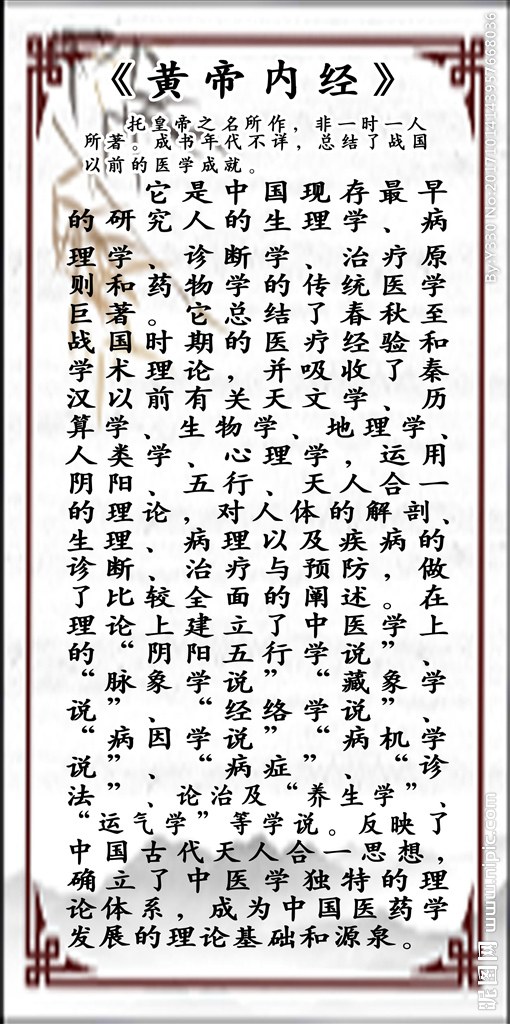 《黄帝内经》
托皇帝之名所作，非一时一人
所著。成书年代不详，总结了战国
以前的医学成就。
它是中国现存最早
的研究人的生理学、病
理学、诊断学、治疗原
则和药物学的传统医学
巨著。它总结了春秋至
战国时期的医疗经验和
学术理论，并吸收了秦
汉以前有关天文学、历
算学、生物学、地理学、
人类学、心理学，运用
阴阳、五行、天人合一
的理论，对人体的解剖、
生理、病理以及疾病的
诊断、治疗与预防，做
了比较全面的阐述。在
理论上建立了中医学上
的“阴阳五行学说”、
“脉象学说”“藏象学
说”、“经络学说”、
“病因学说”“病机学
说”、“病症”、“诊
法”、论治及“养生学”、
“运气学”等学说。反映了
中国古代天人合一思想，
确立了中医学独特的理
论体系，成为中国医药学
发展的理论基础和源泉。
By:YS50 No.20171014143957668036
昵图网 www.nipic.com